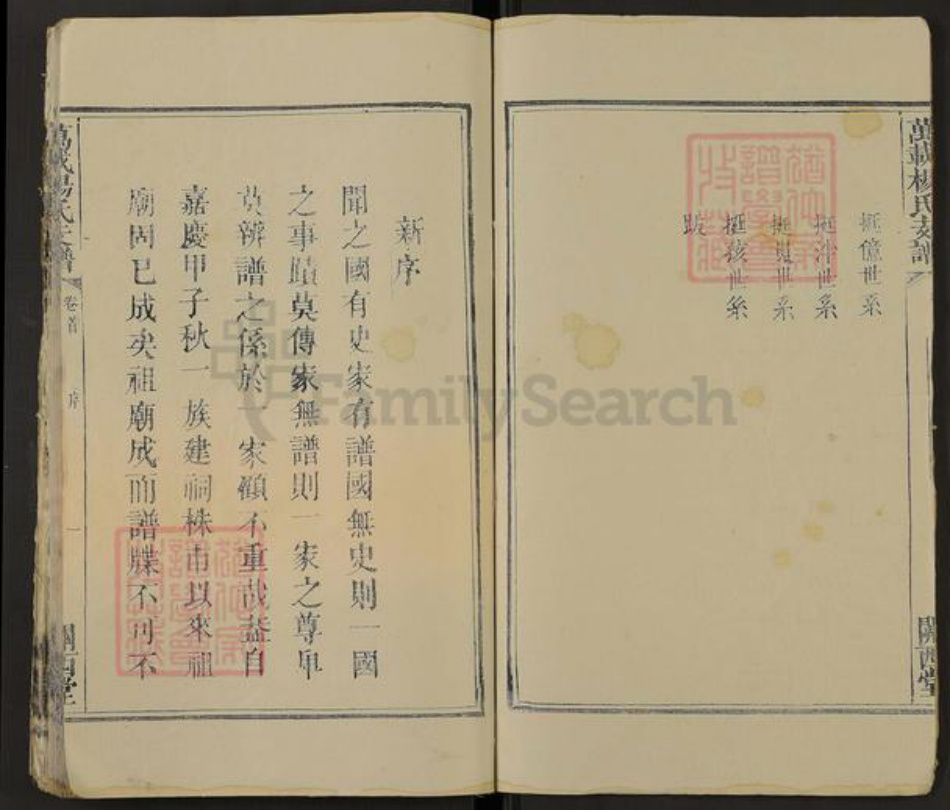 萬載楊氏支譜
關西堂
挺億世系
挺沖世系
挺世系
挺孩世系
跋
新序
聞之國有史家有譜國無史則一國
之事蹟莫傳家無譜則一家之尊卑
莫辨譜之係於一家顧不重哉盖自
嘉慶甲子秋一族建祠株市以來祖
廟固已成矣祖廟成而譜牒不可不
萬載楊氏支譜
卷首
序
一
關西堂
FamilySearch